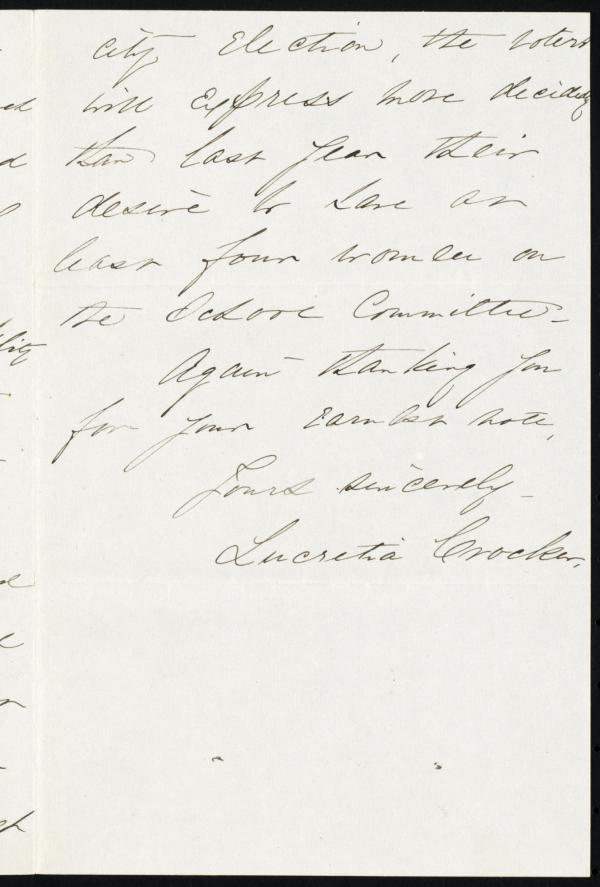 city Election, the voters
will express more decidedly
than last year their
desire to have at
least four women on
the School Committee-
Again thanking you
for your earnest note,
Yours sincerely-
Lucretia Crocker.